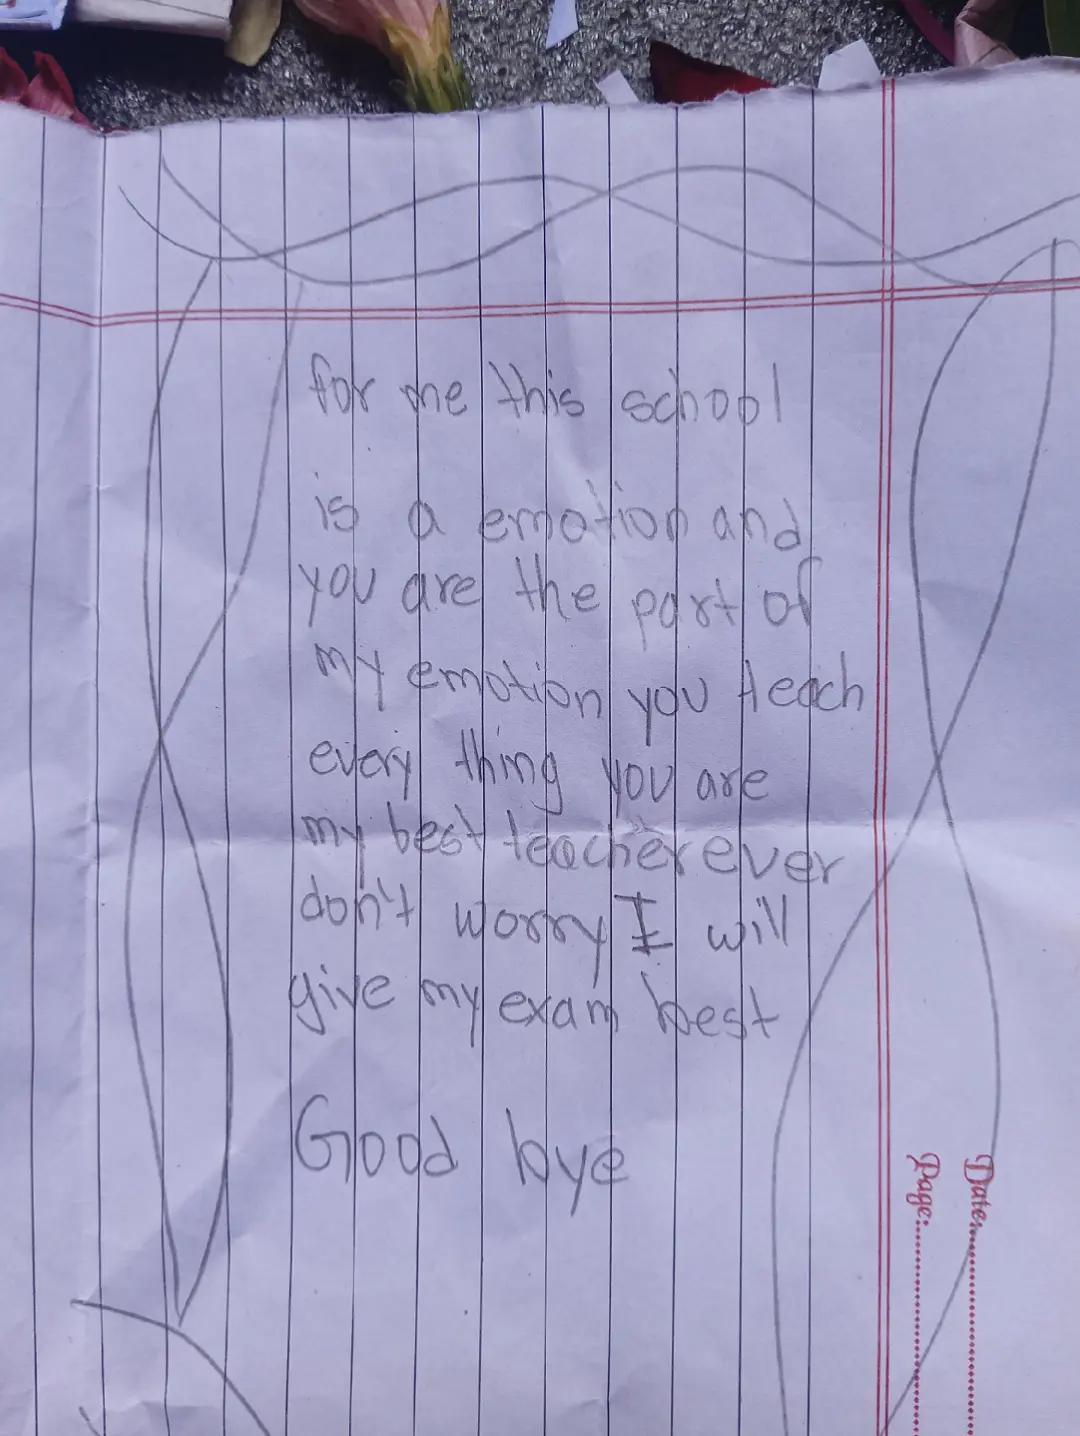 for me this school
is a emotion and
you are the part of
my emotion you teach
every thing you are
my best teacher ever
don't worry I will
give my exam best
Good bye
Date:
Page: